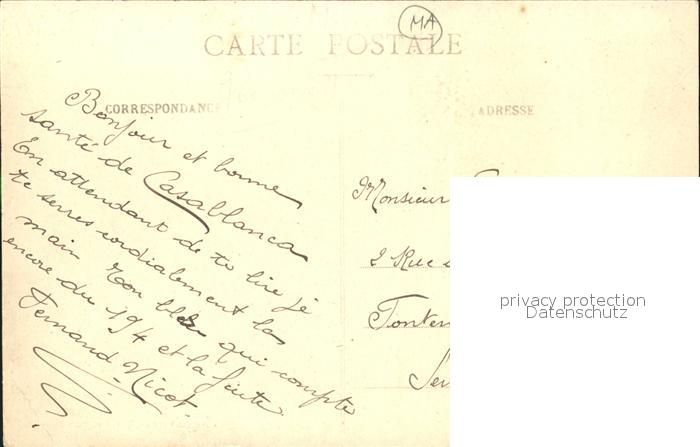 MA
CARTE POSTALE
CORRESPONDANCE
ADRESSE
Bonjour et bonne
santé de Casablanca
En attendant de te lire je
te serres cordialement la
main Ton bleu qui compte
encore du 194 et la fuite.
Fernand Nicot.
Monsieur
2 Rue
Fonten
privacy protection
Datenschutz